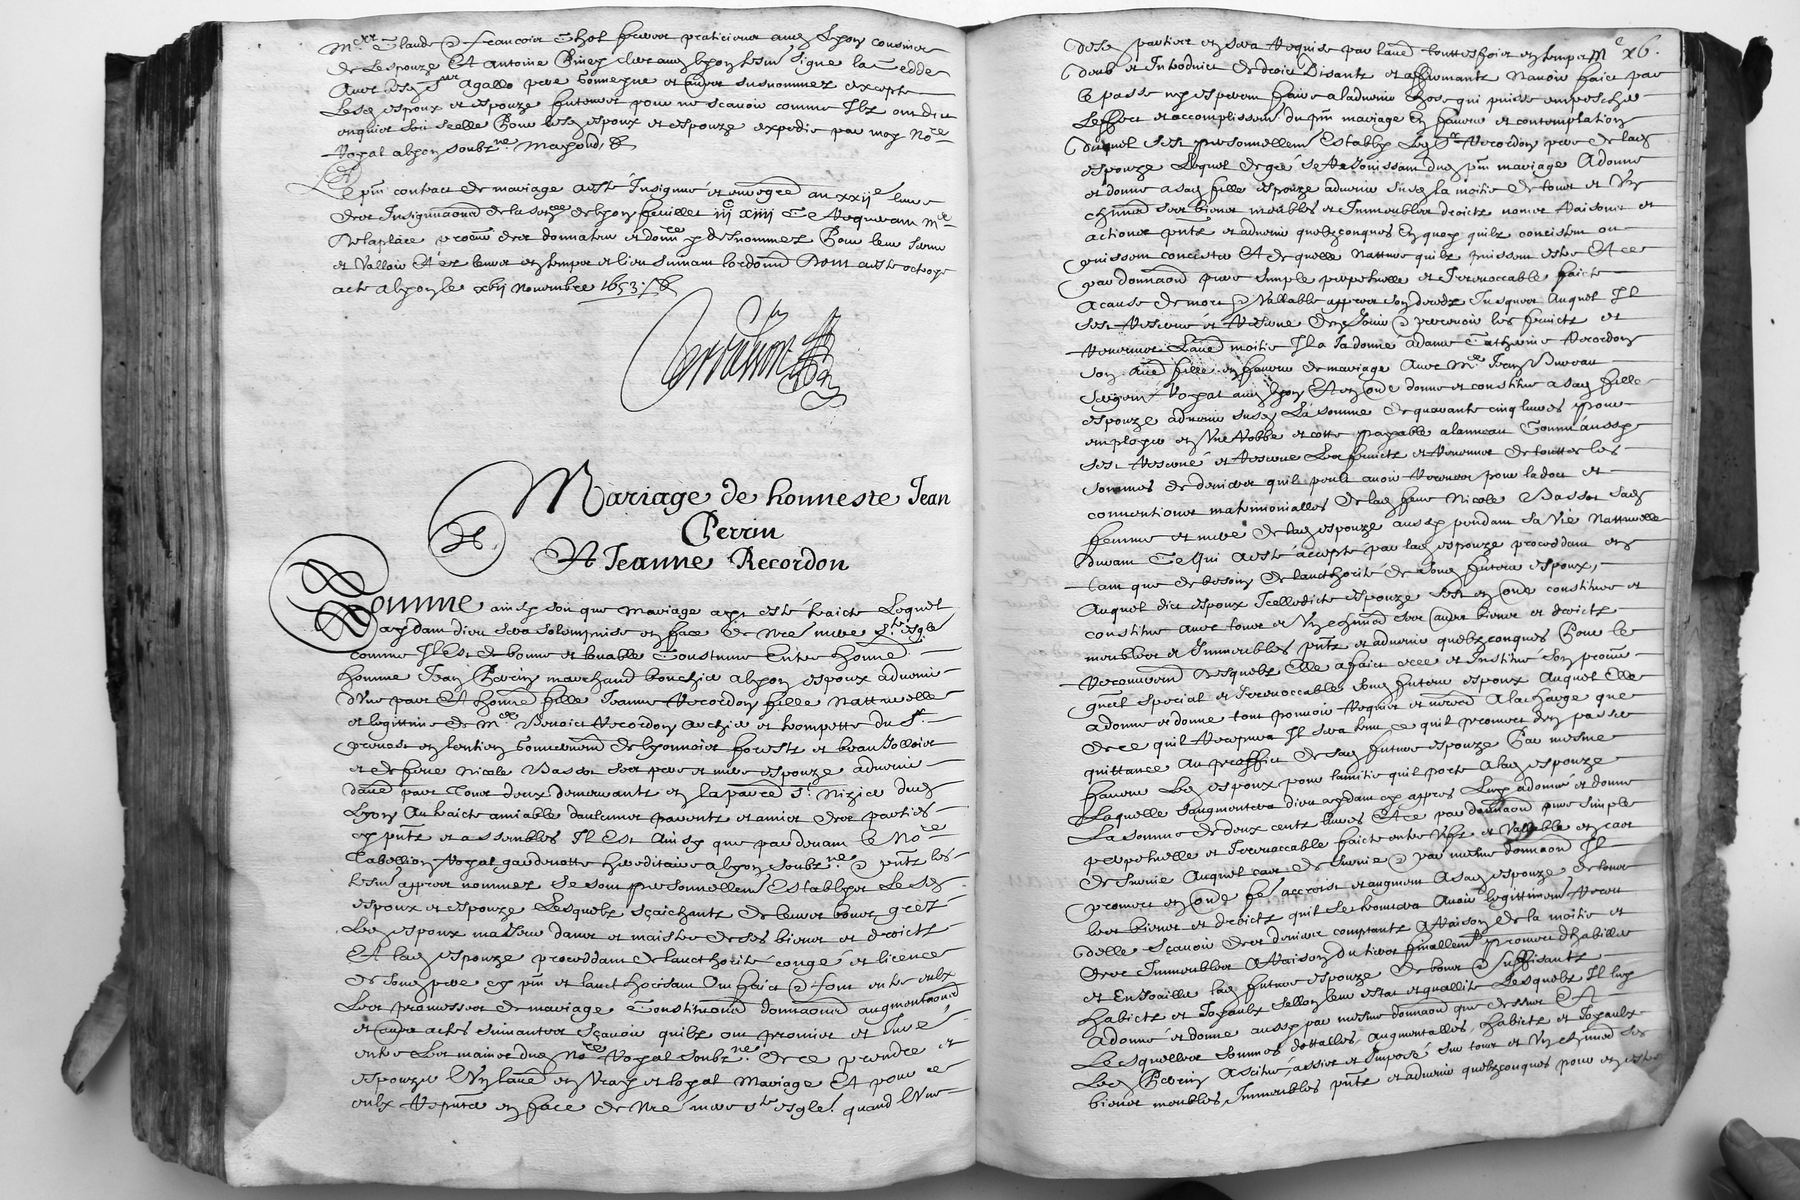 Mes Claude & francois Thol freres praticiens aud Lyon cousins
de Lespouze Et Antoine
Lesd espoux et espouze futeurs pour ne scavoir comme Ilz ont dict
enquis soit scelle Pour lesd espoux et espouze expedie par moy Nore
Royal a lyon soubzne. Mazond, &
Le pnt contract de mariage a esté Insignué et enregré au xxije livre
des Insignuaons de la seneé de lyon feuillet iijc xiiij Ce Requerant Me
Delaplace procur des donnateur et donnre sy desnommez Pour leur servir
et valloir Et es lieux en temps et lieu suivant lordonn Dont a esté octroyé
acte a lyon le xvij Novembre 1653 %. &
Mariage de honneste Jean
Perrin
Et Jeanne Recordon
Comme ainsy soit que Mariage aye esté traicte Lequel
aydant dieu sera solempnise en face de Nre mere Ste esglé
comme Il Est de bonne et louable Coustume Entre honné
homme Jean Perrin marchand bouchier a lyon espoux advenir
d'Une part Et honné fille Jeanne Recordon fille Natturelle
et legittime de Me Benoict Recordon archier et trompette du Sr.
prevost en lentien gouvernem de lyonnois forestz et beaujollois
et de feue Nicole Bassot ses pere et mere espouze advenir
daue part Tous deux demeurantz en la parré St. Nizier dud
Lyon Au traicte amiable daulcuns parentz et amis des parties
cy pntz et assembles Il Est Ainsy que par devant le Nore
Tabellion Royal gardenotte hereditaire a lyon soubzne. & pntz les
tesm appres nommez se sont personnellem Establys Lesd
espoux et espouze Lesquelz sçaichantz de leurs bons grez
Led espoux maieur dans et maistre de ses biens et droictz
Et lad espouze proceddant de lauct horité congé et licence
de soud pere cy pnt et lauct horisant Ont faict & font entre eulx
Les promesses de mariage Constituaons donnaons augmentaons
et aues actes suivantes Sçavoir quilz ont promis et Juré
entre les mains dud Nore Royal soubzne. de se prendre et
espouzer l'Un laue en Vray et loyal Mariage Et pour ce
eulx Repnter en face de Nre mere ste esglé. quand l'Une
Me xv6.
desd parties en sera Requise par laue touttesfois en temps
deub et Introduict de droict Disantz et affirmantz Navoir faict par
le passe ny esperent faire a ladvenir chose qui puisse empescher
Leffect et accomplissem du pnt mariage En faveur et contemplation
duquel sest personnellem Establý Led Sr Recordon pere de lad
espouze Lequel de gré se Resiouissant dud pnt mariage A donne
et donne a sad fille espouze advenir susd la moitie de tous et Un
chacuns ses biens meubles et Immeubles droictz noms Raisons et
actions pntz et advenir quelzconques En quoy quilz concistent ou
puissent concister Et de quelle Natture quilz puissent estre Et ce
par donnaon pure simple perpetuelle et Irrevocable faicte
a cause de mort & Vallable appres son decedz Jusques Auquel Il
sest Reservé et Reserve den Jouir & percevoir les fruictz et
Revenus Laue moitie Il a Ja donne a dame Catherine Recordon
son aue fille en faveur de mariage avec Me Jean Bureau
Sergent Royal aud lyon Et en oue donne et constitue a sad fille
espouze advenir susd La somme de quarante cinq livres pour
employer en Une Robbe et cotte payable a lanneau Comme aussy
sest Reservé et Reserve Les fruictz et Revenus de touttes les
sommes de deniers quil peult avoir Receues pour la dot et
conventions matrimonialles de lad feue Nicole Bassot sad
femme et mere de lad espouze aussy pendant sa Vie Natturelle
Durant Ce qui a esté accepte par lad espouze proceddant en
tant que de besoing de lauct horité de soud futeur espoux,
Auquel dict espoux Icelledicte espouze sest en oue constituee et
constitue avec tous et Un chacuns ses aues biens et droictz
meubles et Immeubles pntz et advenir quelzconques Pour le
Recouvrem desquelz Elle a faict cree et Institué son procur
gnral special et Irrevocable soud futeur espoux Auquel Elle
a donne et donne tout pouvoir Requis et necess A la charge que
de ce quil Recepvra Il sera tenu ce quil promect den passer
quittance Au proffict de sad future espouze Par mesme
faveur Led espoux pour lamitie quil porte A lad espouze
Laquelle saugmentera dieu aydant cy appres Luy a donné et donne
La somme de deux centz livres Et ce par donnaon pure simple
perpetuelle et Irrevocable faicte entre Vifz et Vallable en cas
de survie Auquel cas de survie & par mesme donnaon Il
promect en oue faire accroist et augment A sad espouze de tous
les biens et droictz quil se trouvera Avoir legittimem Receu
delle Sçavoir des deniers comptants A Raison de la moitie et
des Immeubles A Raison du tiers finallem promect dhabiller
et Enjoailler lad future espouze de bons & suffisants
habictz et Joyaulx sellon leur estat et quallite Lesquelz Il luy
A donné et donne aussy par mesme donnaon que dessus Et
Lesquelles sommes dottalles, augmentalles, habictz et Joyaulx
Led Perrin A scitué, assis et Imposé sur tous et Un chacuns ses
biens meubles, Immeubles pntz et advenir quelzconques pour en estre